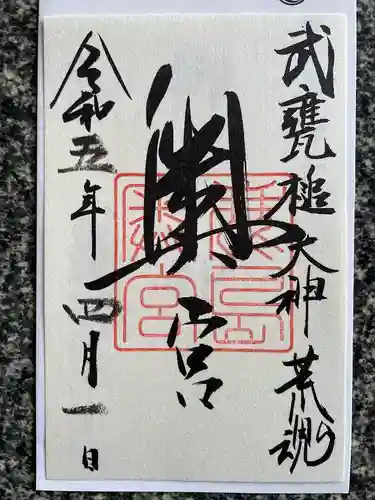 武甕槌大神 荒魂
奥宮
令和五年四月一日